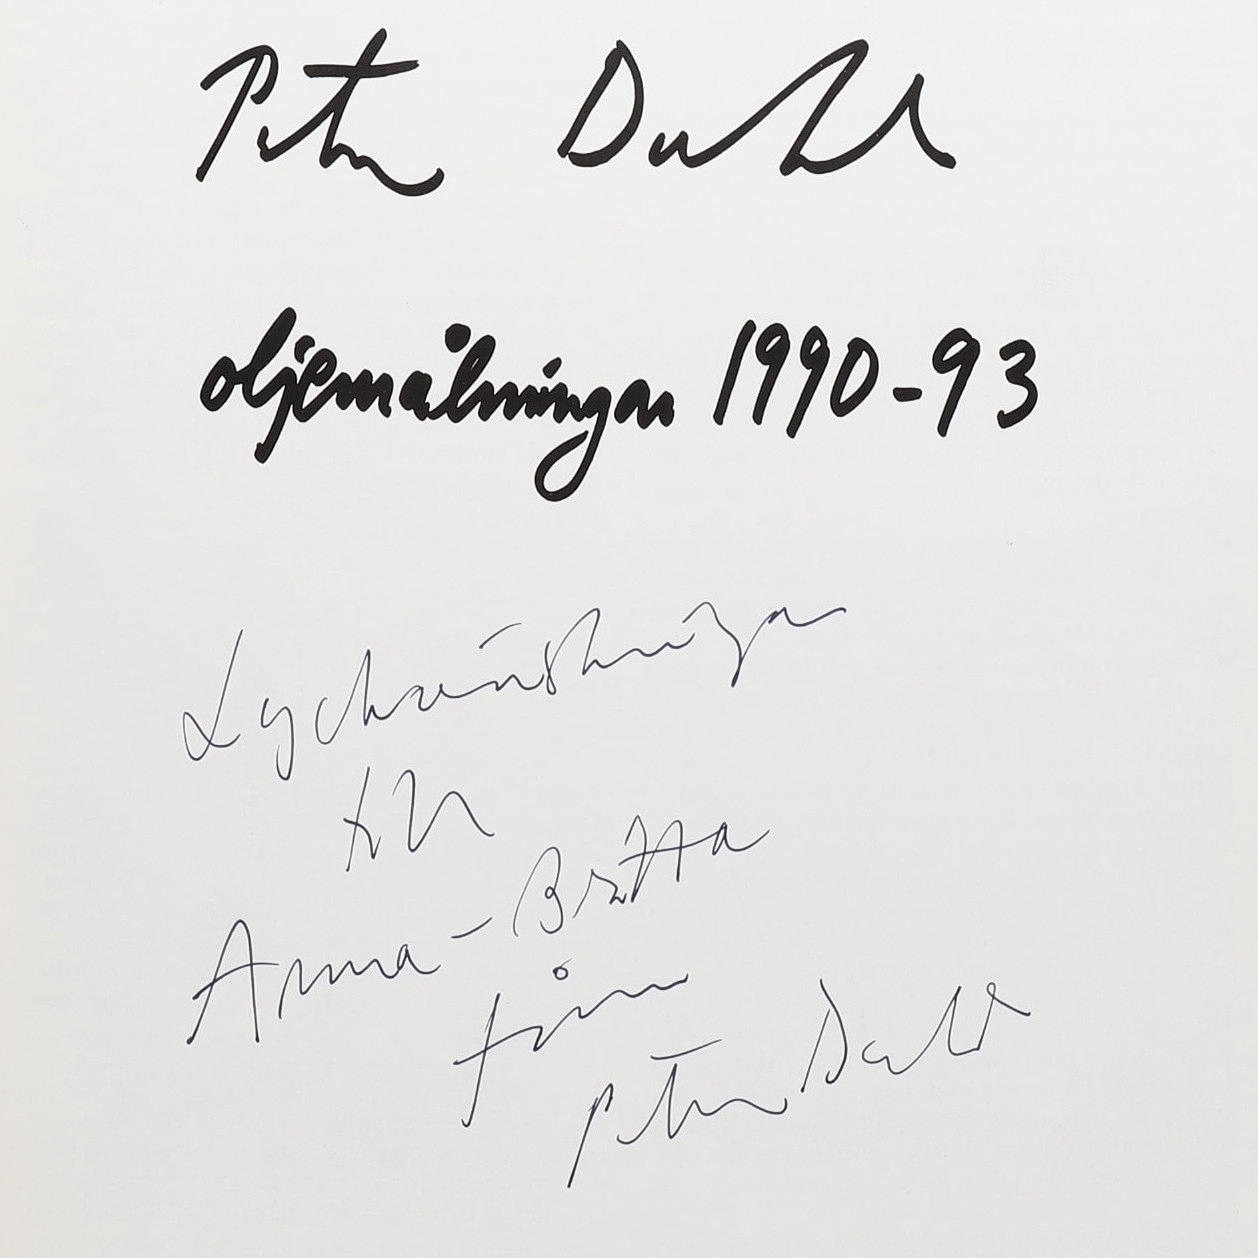 Peter Dahl
oljemålningar 1990-93
Lyckönskningar
till
Anna-Britta
från
Peter Dahl